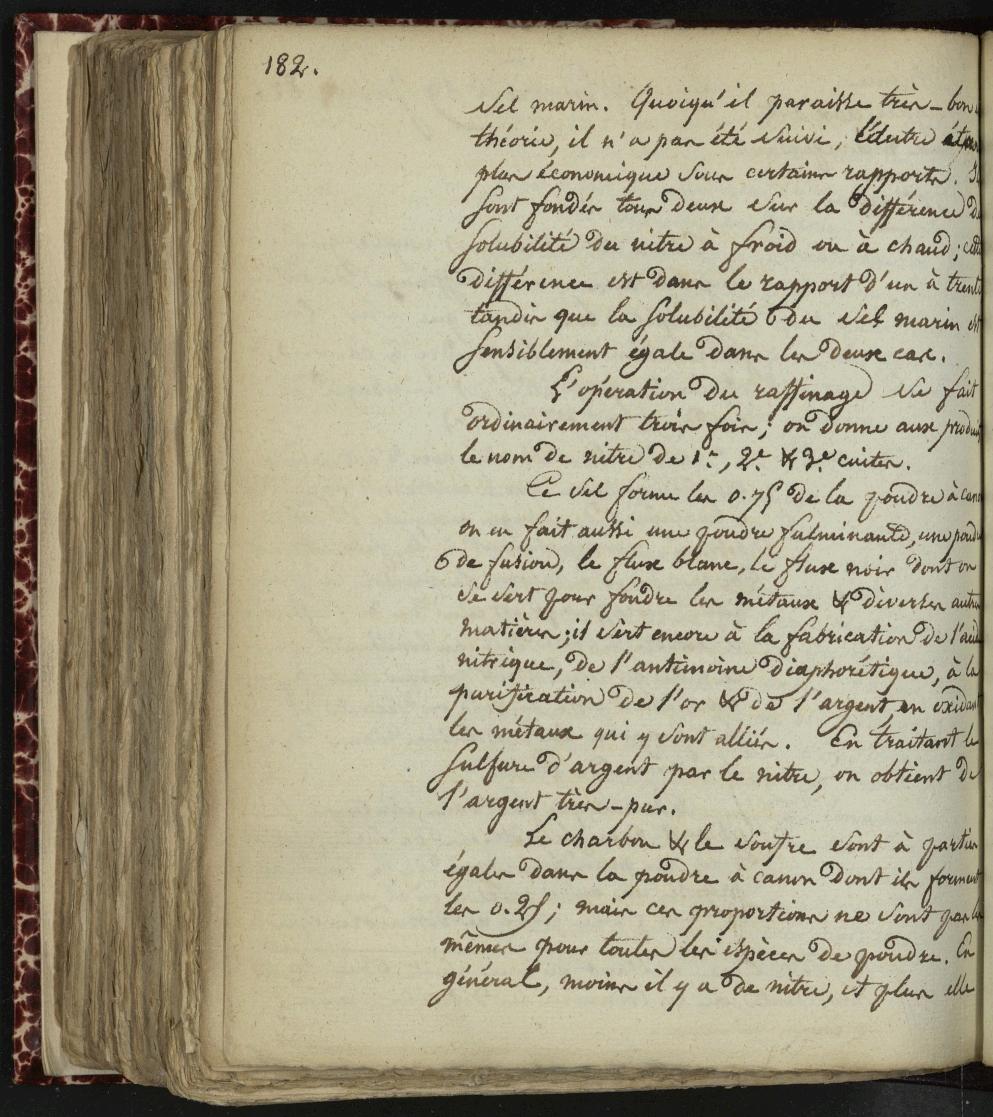 182.
Sel marin. Quoiqu'il paraisse très-bon
théorie, il n'a pas été suivi, l'autre
plus économique sous certains rapports.
sont fondés tous deux sur la différence de
solubilité du nitre à froid ou à chaud; cette
différence est dans le rapport d'un à trente
tandis que la solubilité du Sel marin est
sensiblement égale dans les deux cas.
L'opération du raffinage se fait
ordinairement trois fois; on donne aux produits
le nom de nitre de 1re, 2e & 3e cuites.
Ce Sel forme les 0.75 de la poudre à canon
on en fait aussi une poudre fulminante, une poudre
de fusion, le flux blanc, le flux noir dont on
se sert pour fondre les métaux & diverses autres
matières; il sert encore à la fabrication de l'acide
nitrique, de l'antimoine diaphorétique, à la
purification de l'or & de l'argent, en oxidant
les métaux qui y sont alliés. En traitant le
sulfure d'argent par le nitre, on obtient de
l'argent très-pur.
Le charbon & le soufre sont à parties
égales dans la poudre à canon dont ils forment
les 0.25; mais ces proportions ne sont pas les
mêmes pour toutes les espèces de poudre. En
général, moins il y a de nitre, et plus elle